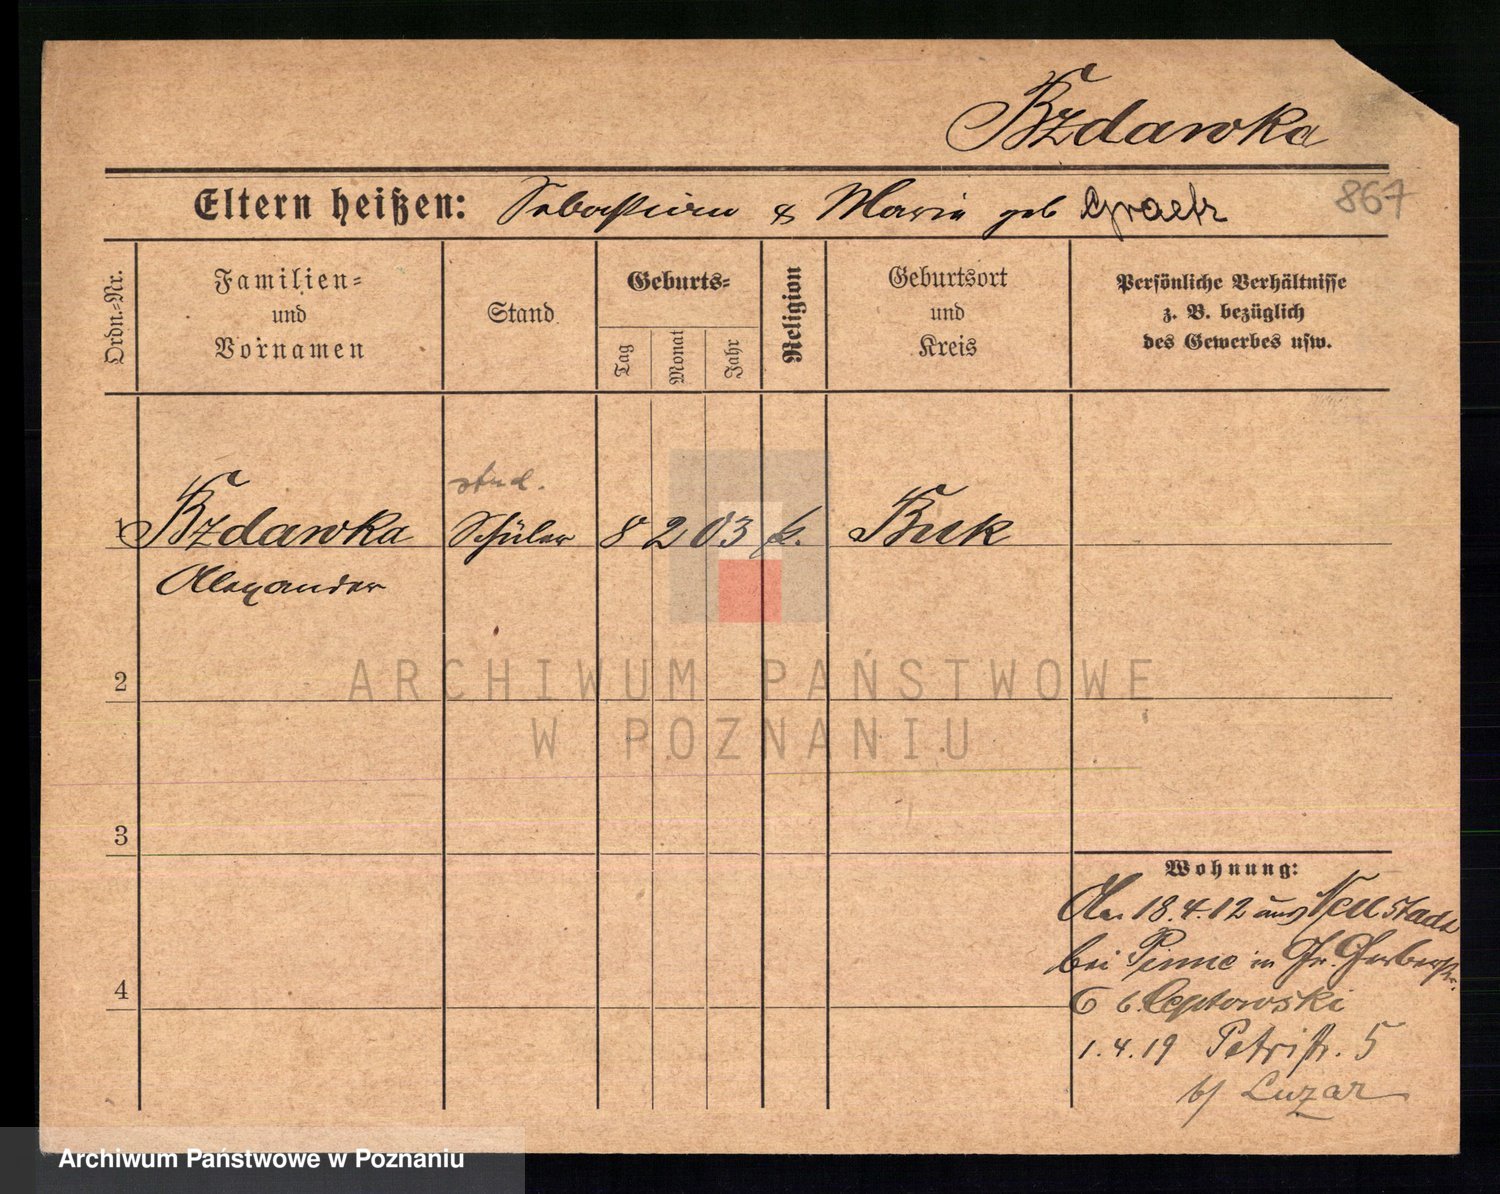 Bzdawka
Eltern heißen: Sebastian & Marie geb Graetz
867
Ordn.-Nr.
Familien-
und
Vornamen
Stand
Geburts-
Tag
Monat
Jahr
Religion
Geburtsort
und
Kreis
Persönliche Verhältnisse
z. B. bezüglich
des Gewerbes usw.
stud.
1 Bzdawka Schüler 8 2 03 k. Buk
Alexander
ARCHIWUM PAŃSTWOWE
W POZNANIU
2
3
4
Wohnung:
18.4.12 aus Neustadt
bei Pinne in Gr. Gerberstr.
6 b. Ceptowski
1.4.19 Petristr. 5
b/ Luzar
Archiwum Państwowe w Poznaniu